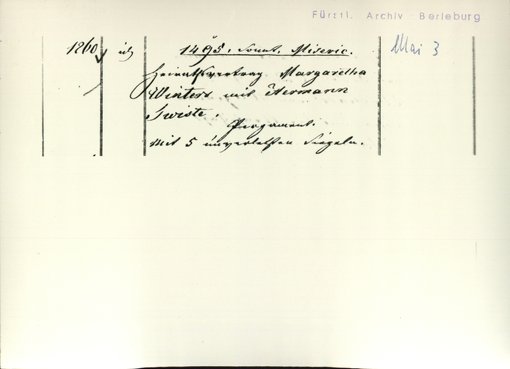 Fürstl. Archiv Berleburg
1260
1495. Sonnt. Miseric.
Mai 3
Heirathsvertrag Margaretha
Winters mit Hermann
Zwiste.
Pergament.
Mit 5 unverletzten Siegeln.